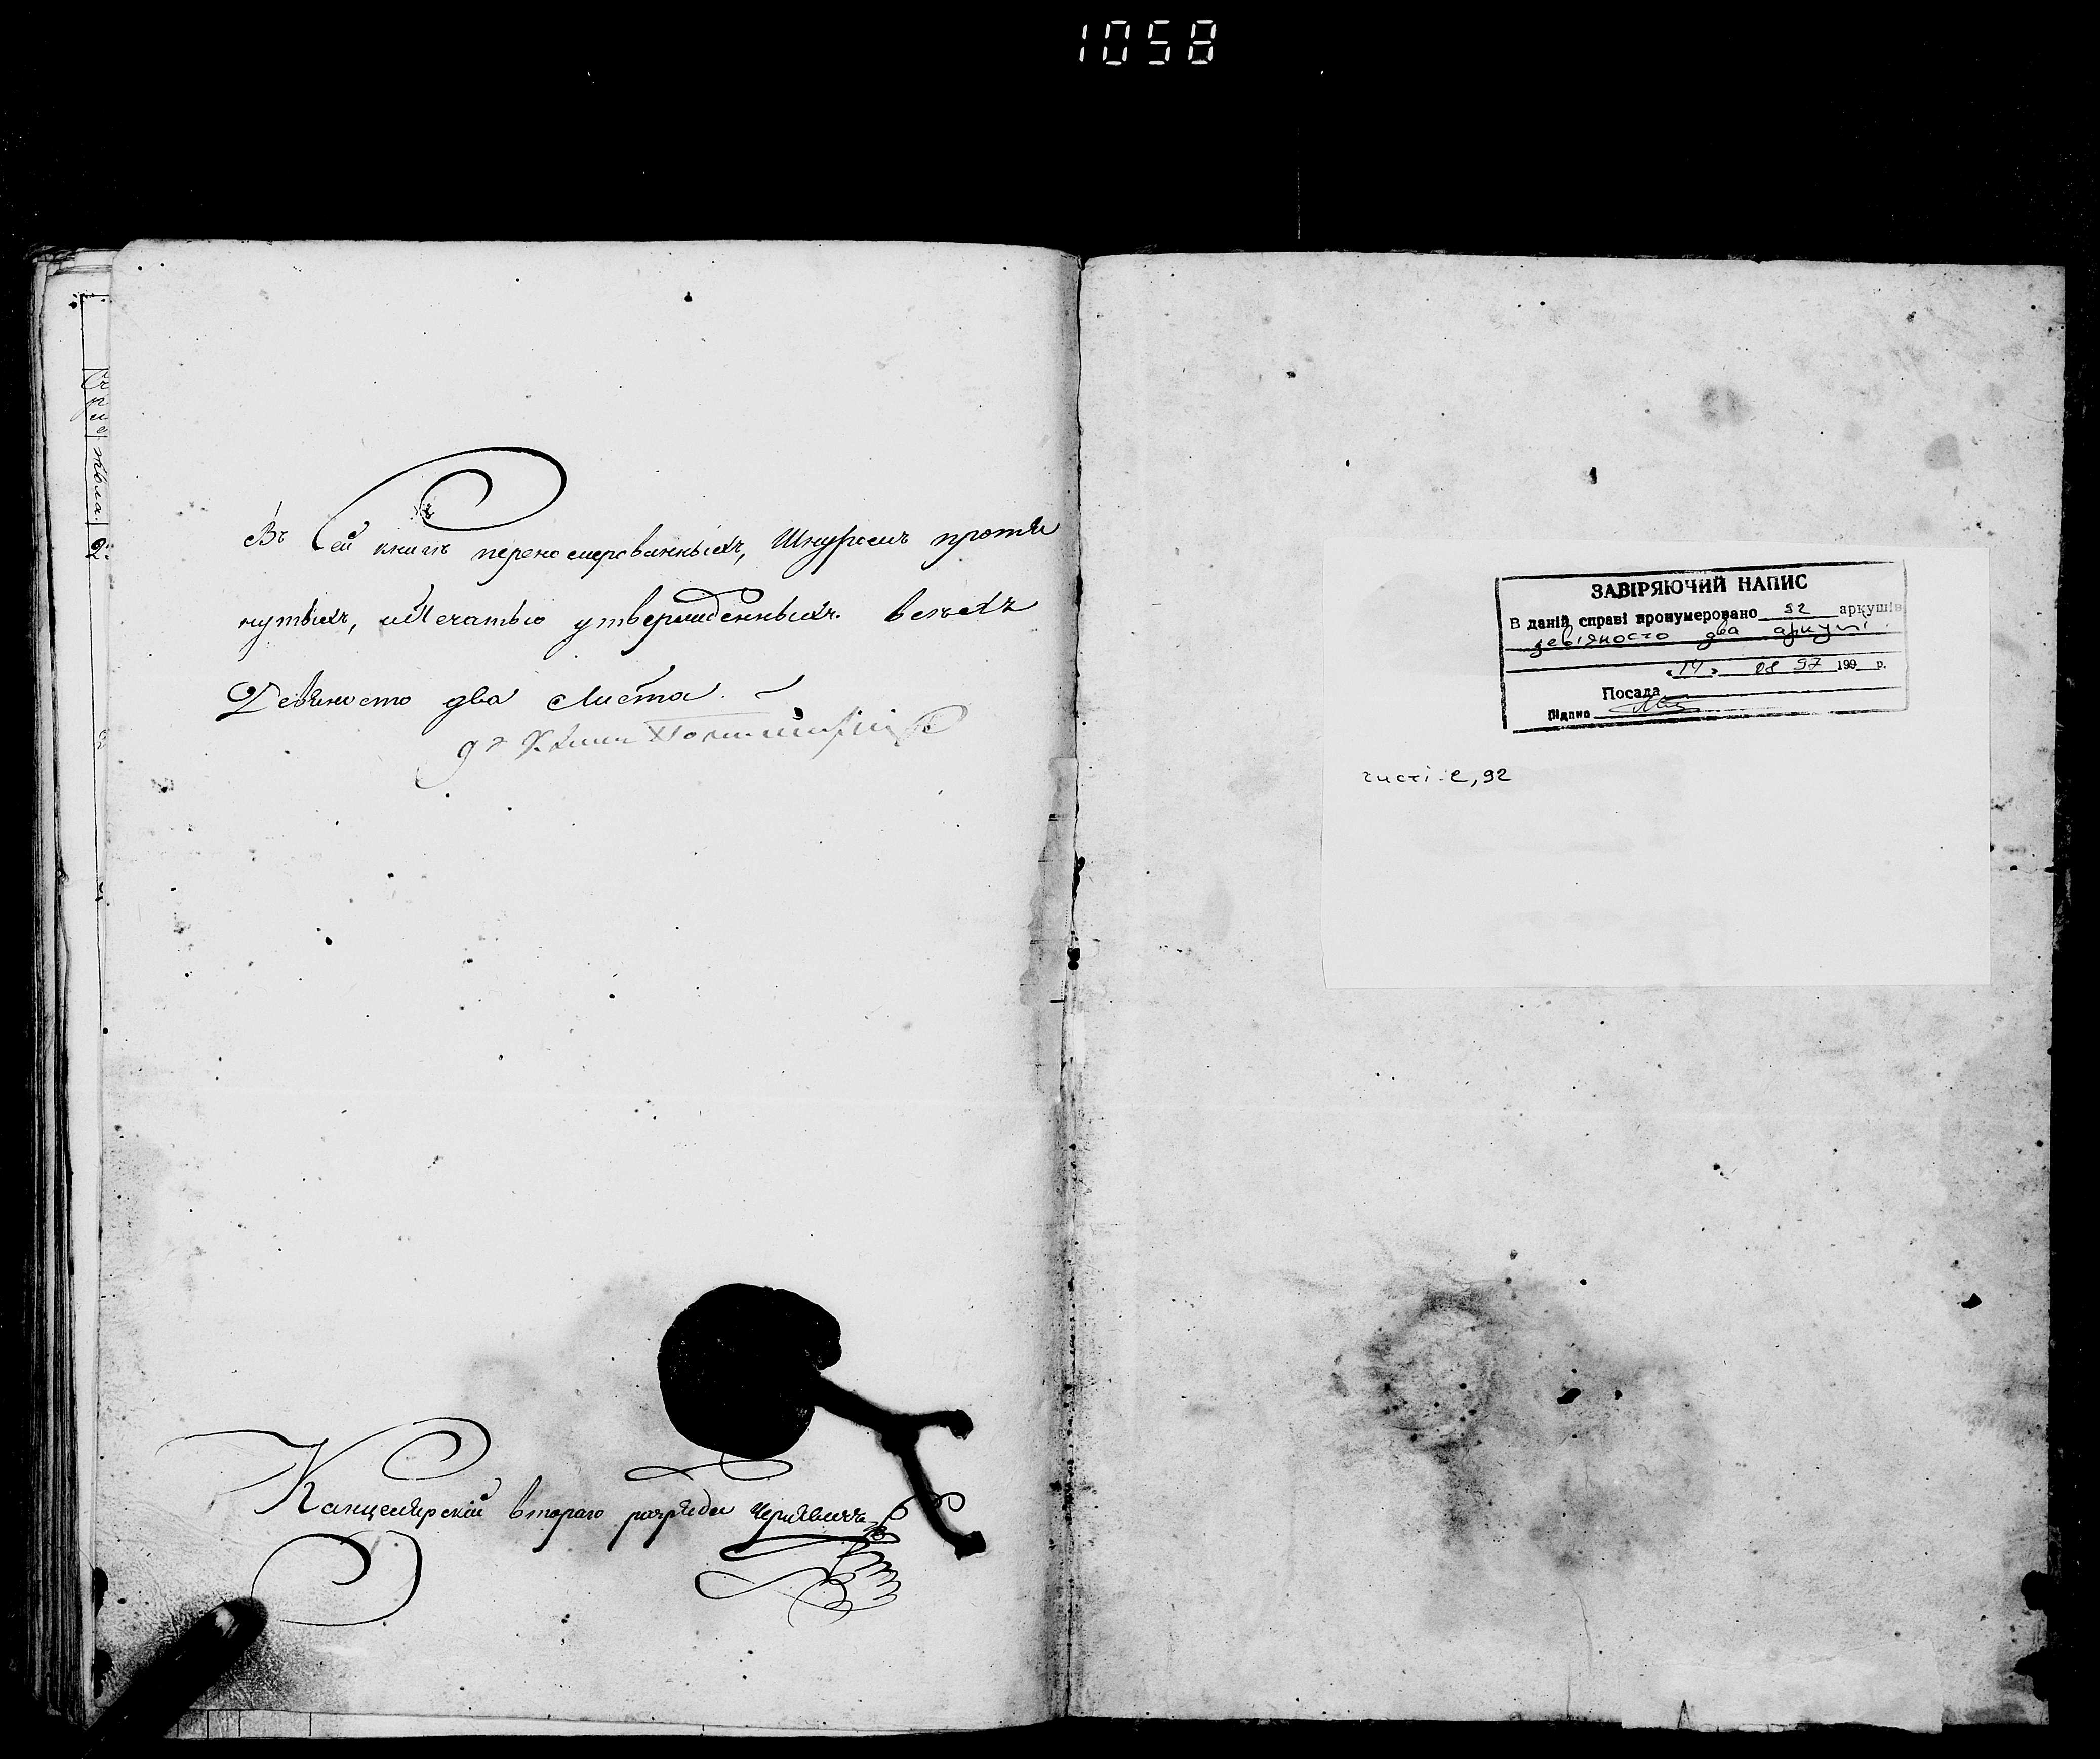 1058
Въ сей книгѣ переномерованныхъ, Шнуромъ протя
нутыхъ, и Печатью утвержденныхъ. всѣхъ
Девяносто два Листа.
Канцелярскій втораго разряда
ЗАВІРЯЮЧИЙ НАПИС
В даній справі пронумеровано 92 аркушів
дев'яносто два аркуші.
"14" 08 97 199 р.
Посада
Підпис
чисті: 2, 92